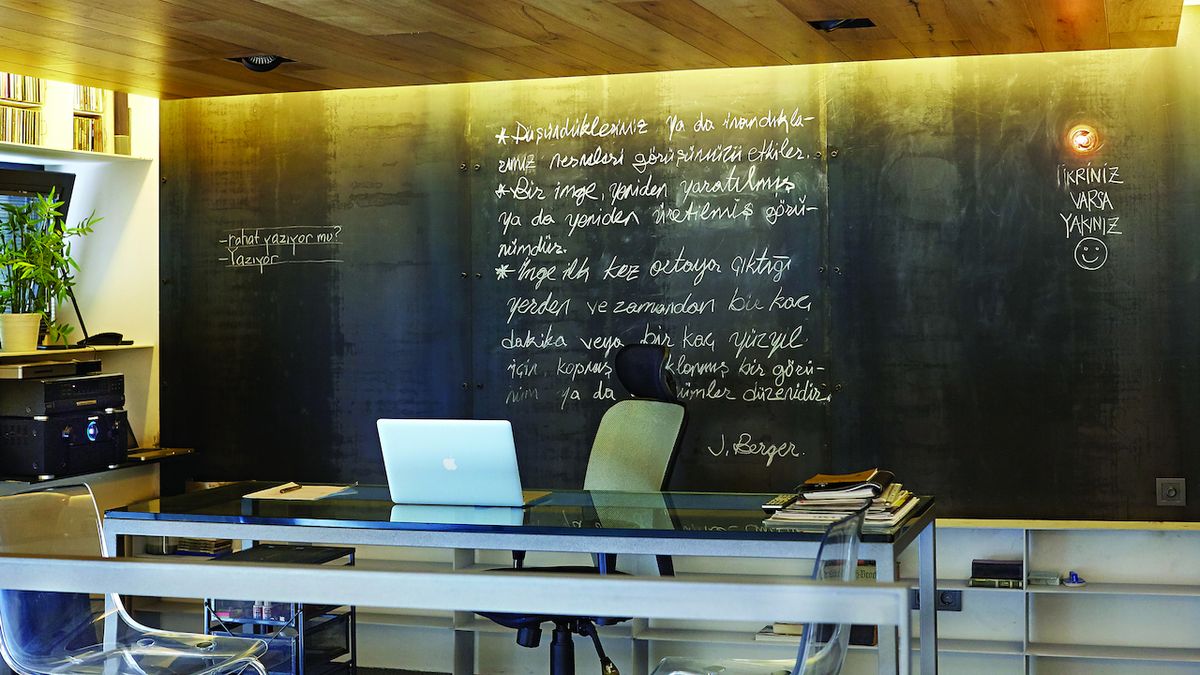 -rahat yazıyor mu?
-Yazıyor
* Düşündükleriniz ya da inandıkla-
rınız nesneleri görüşünüzü etkiler.
* Bir imge, yeniden yaratılmış
ya da yeniden üretilmiş görü-
nümdür.
* İmge ilk kez ortaya çıktığı
yerden ve zamandan bir kaç
dakika veya bir kaç yüzyıl
için kopmuş bir görü-
nüm ya da düzenidir.
J. Berger.
FİKRİNİZ
VARSA
YAKINIZ